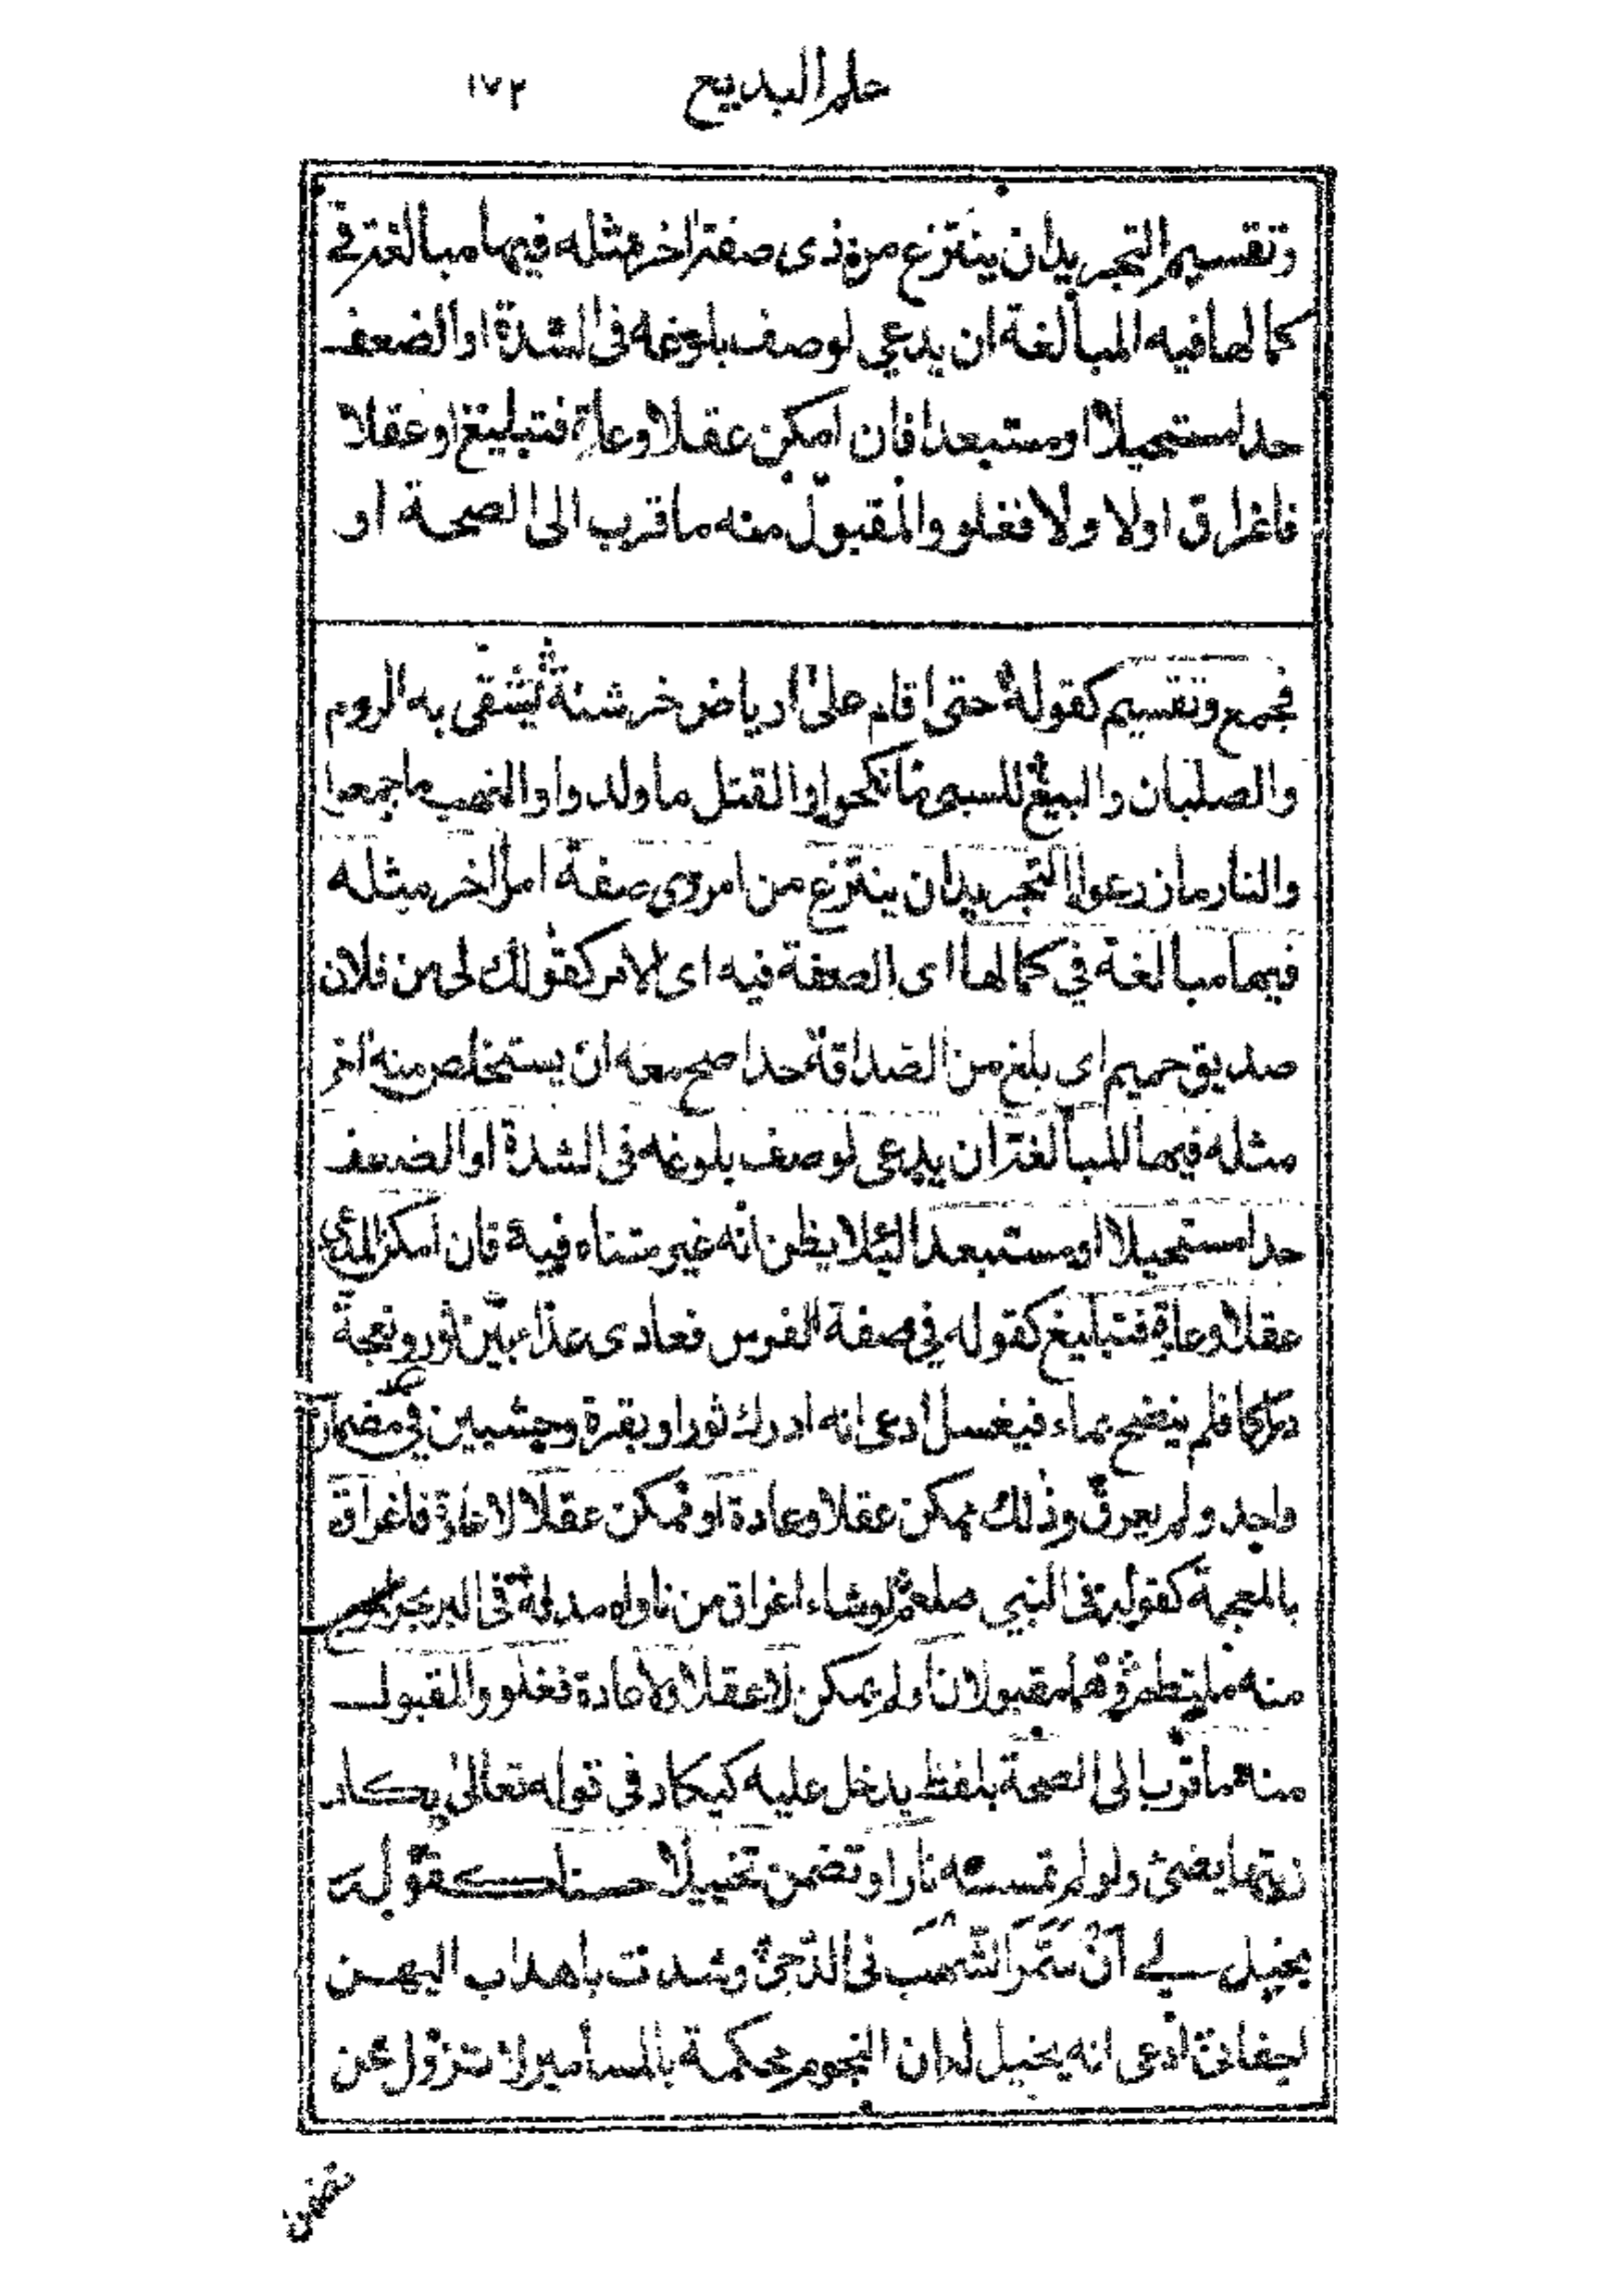 علم البديع ١٧٢
وتقسيم التجريد ان ينتزع من ذى صفة اخر مثله فيها مبالغة في
كمالها فيه المبالغة ان يدعي لوصف بلوغه فى الشدة او الضعف
حدا مستحيلا او مستبعدا فان امكن عقلا وعادة فتبليغ او عقلا
فاغراق اولا ولا فغلو والمقبول منه ما قرب الى الصحة او
فجمع وتقسيم كقوله حتى اقام على ارباض خرشنة تشقى به الروم
والصلبان والبيع للسبي ما نكحوا والقتل ما ولدوا والنهب ما جمعوا
والنار ما زرعوا التجريد ان ينتزع من امر ذى صفة امر اخر مثله
فيها مبالغة في كمالها اى الصفة فيه اى الامر كقولك لى من فلان
صديق حميم اى بلغ من الصداقة حدا صح معه ان يستخلص منه اخر
مثله فيها المبالغة ان يدعى لوصف بلوغه فى الشدة او الضعف
حدا مستحيلا او مستبعدا لئلا يظن انه غير متناه فيه فان امكن المدعى
عقلا وعادة فتبليغ كقوله في صفة الفرس فعادى عداء بين ثور ونعجة
دراكا فلم ينضح بماء فيغسل ادعى انه ادرك ثورا وبقرة وحشيين في مضمار
واحد ولم يعرق وذلك ممكن عقلا وعادة او ممكن عقلا لا عادة فاغراق
بالمعجمة كقوله فى النبي صلعم لوشاء اغراق من ناواه مد له فى البر بحر
منه ملتطم وهما مقبولان او لم يمكن لا عقلا ولا عادة فغلو والمقبول
منه ما قرب الى الصحة بلفظ يدخل عليه كيكاد فى قوله تعالى يكاد
زيتها يضئ ولو لم تمسسه نار او تضمن تخييلا حسنا كقوله
يخيل لي أن سمر الشهب فى الدجى وشدت باهداب اليهن
اجفانى ادعى انه يخيل له ان النجوم محكمة بالمسامير لا تزول عن